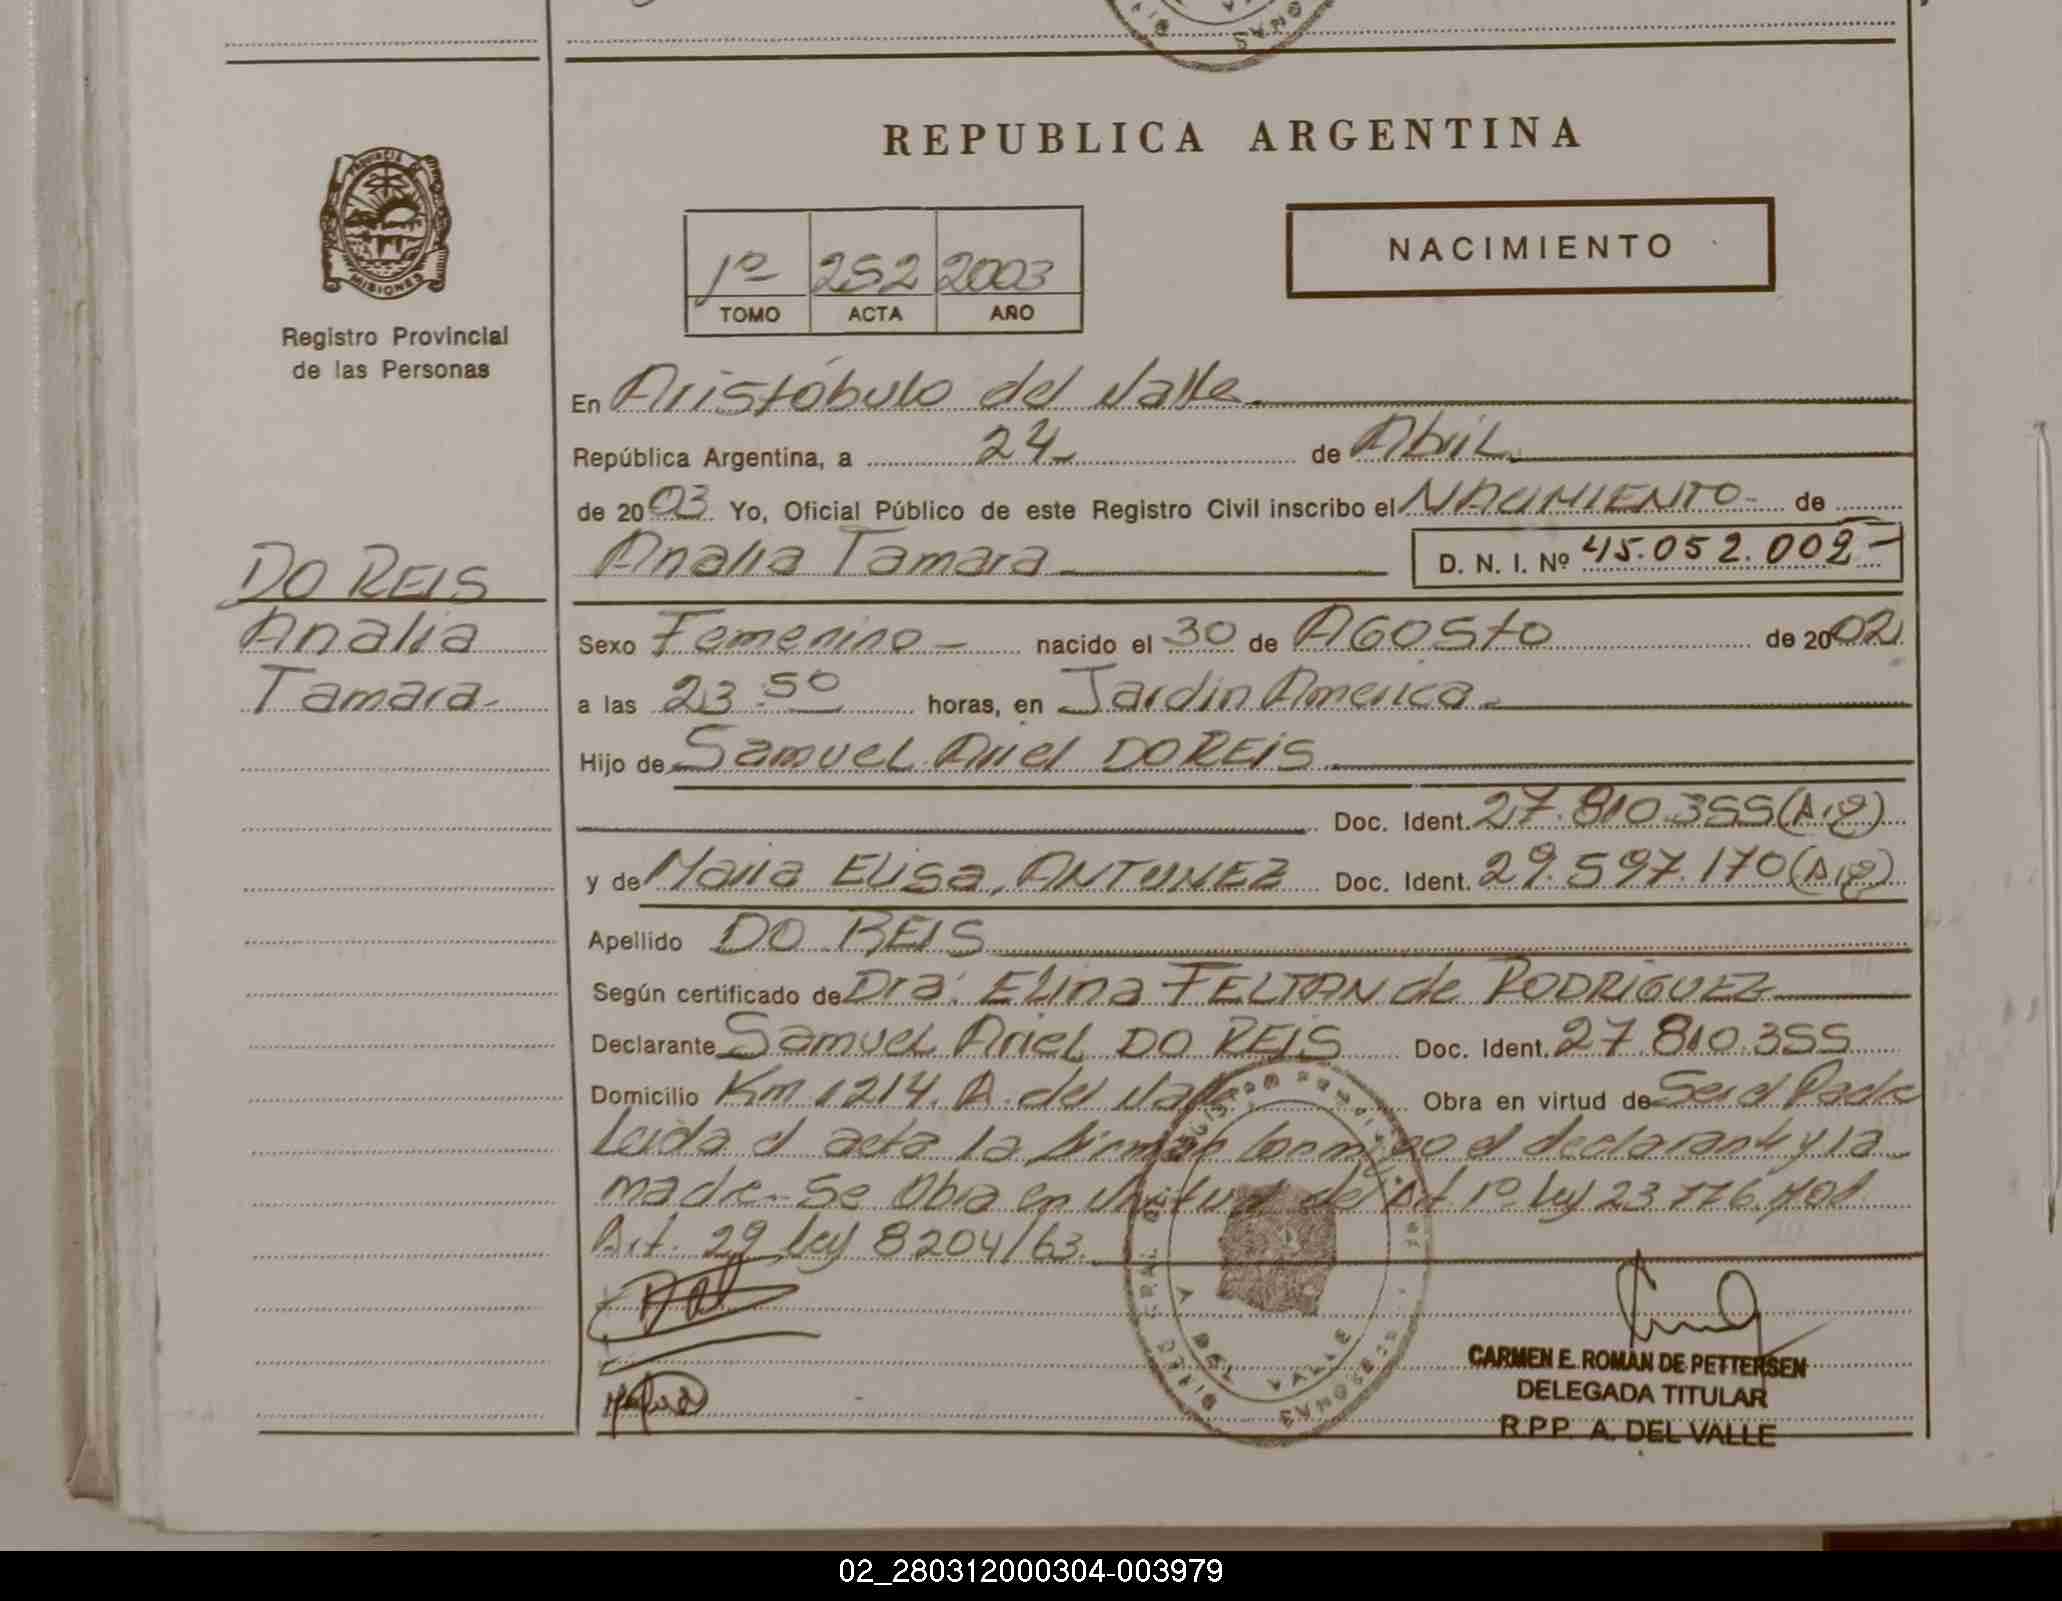 REPUBLICA ARGENTINA
PROVINCIA
MISIONES
Registro Provincial
de las Personas
1º 252 2003
TOMO ACTA AÑO
NACIMIENTO
En Aristóbulo del Valle
República Argentina, a 24 de Abril
de 2003 Yo, Oficial Público de este Registro Civil inscribo el NACIMIENTO de
Analia Tamara D. N. I. Nº 45.052.002
DO REIS
Analia
Tamara
Sexo Femenino nacido el 30 de AGOSTO de 2002
a las 23:50 horas, en Jardin America
Hijo de Samuel Ariel DO REIS
Doc. Ident. 27.810.355 (Arg)
y de Maria Elisa, ANTUNEZ Doc. Ident. 29.597.170 (Arg)
Apellido DO REIS
Según certificado de Dra. Elina FELTAN de RODRIGUEZ
Declarante Samuel Ariel DO REIS Doc. Ident. 27.810.355
Domicilio Km 1214. A. del Valle Obra en virtud de Ser el Padre
Leida el acta la firman conmigo el declarante y la
madre. Se Obra en virtud del Art 1º ley 23776. Mod.
Art. 29 ley 8204/63.
A DEL VALLE
CARMEN E. ROMAN DE PETTERSEN
DELEGADA TITULAR
R.P.P. A. DEL VALLE
02_280312000304-003979